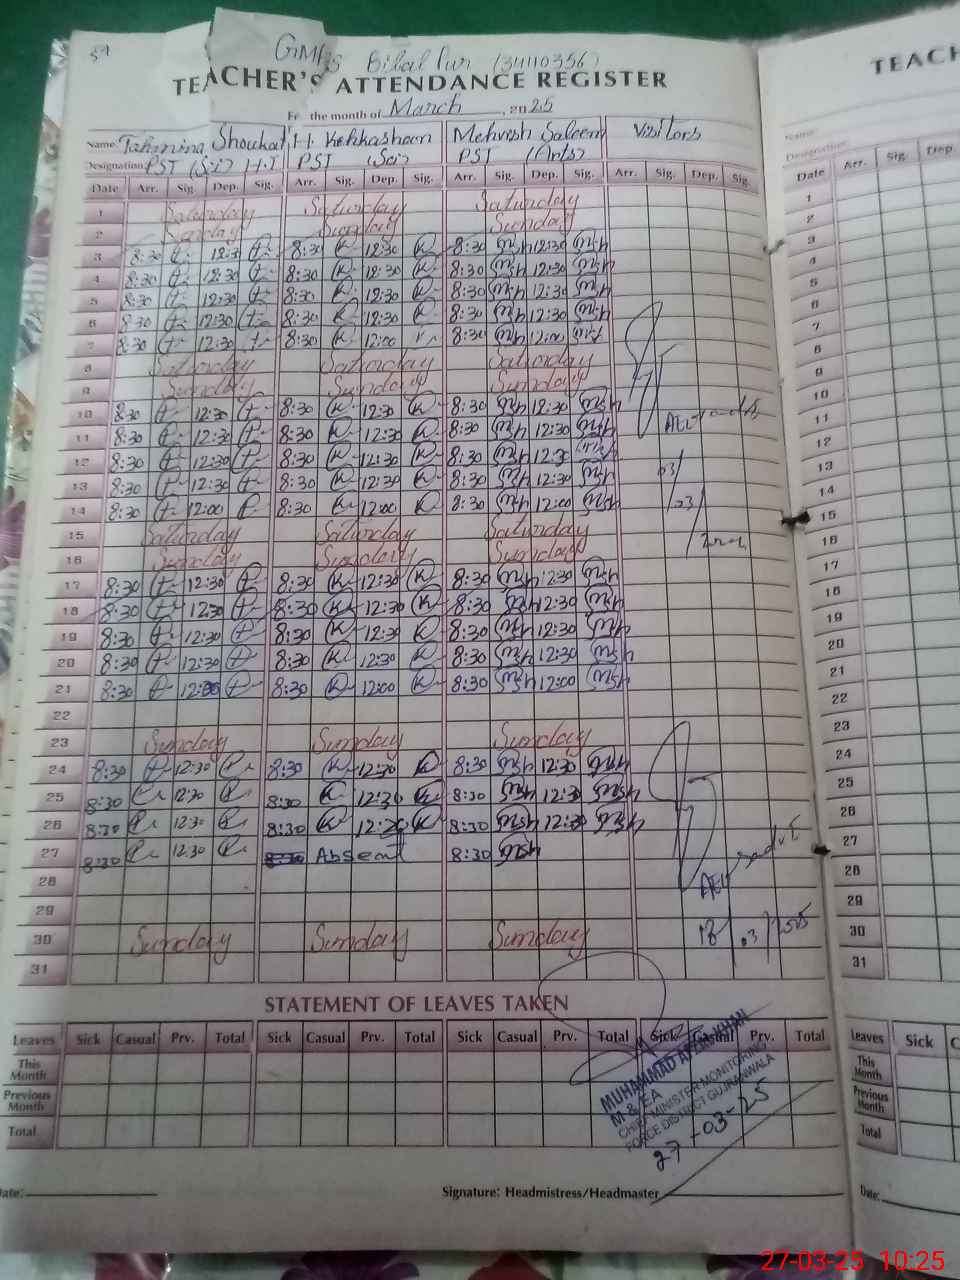 59
GMPS Bilal Pur (34110356)
TEACHER'S ATTENDANCE REGISTER
the month of March, 2025
Name: Tahmina Shoukat H. Kehkasheen Mehvish Saleem Visitors
Designation: PST (Sci) H.T PST (Sci) PST (Arts)
Date Arr. Sig. Dep. Sig. Arr. Sig. Dep. Sig. Arr. Sig. Dep. Sig. Arr. Sig. Dep. Sig.
1 Saturday Saturday Saturday
2 Sunday Sunday Sunday
3 8:30 12:30 8:30 12:30 8:30 12:30
4 8:30 12:30 8:30 12:30 8:30 12:30
5 8:30 12:30 8:30 12:30 8:30 12:30
6 8:30 12:30 8:30 12:30 8:30 12:30
7 8:30 12:30 8:30 12:00 8:30 12:00
8 Saturday Saturday Saturday
9 Sunday Sunday Sunday
10 8:30 12:30 8:30 12:30 8:30 12:30
11 8:30 12:30 8:30 12:30 8:30 12:30
12 8:30 12:30 8:30 12:30 8:30 12:30
13 8:30 12:30 8:30 12:30 8:30 12:30
14 8:30 12:00 8:30 12:00 8:30 12:00
15 Saturday Saturday Saturday
16 Sunday Sunday Sunday
17 8:30 12:30 8:30 12:30 8:30 12:30
18 8:30 12:30 8:30 12:30 8:30 12:30
19 8:30 12:30 8:30 12:30 8:30 12:30
20 8:30 12:30 8:30 12:30 8:30 12:30
21 8:30 12:00 8:30 12:00 8:30 12:00
22
23 Sunday Sunday Sunday
24 8:30 12:30 8:30 12:30 8:30 12:30
25 8:30 12:30 8:30 12:30 8:30 12:30
26 8:30 12:30 8:30 12:30 8:30 12:30
27 8:30 12:30 Absent 8:30
28
29
30 Sunday Sunday Sunday 18/03/2025
31
STATEMENT OF LEAVES TAKEN
Leaves Sick Casual Prv. Total Sick Casual Prv. Total Sick Casual Prv. Total Sick Casual Prv. Total
This Month
Previous Month
Total
MUHAMMAD AFZAL KHAN
M & EA
CHIEF MINISTER MONITORING
FORCE DISTRICT GUJRANWALA
27-03-25
Date: Signature: Headmistress/Headmaster
TEACH
Name:
Designation:
Date Arr. Sig. Dep.
1
2
3
4
5
6
7
8
9
10
11
12
13
14
15
16
17
18
19
20
21
22
23
24
25
26
27
28
29
30
31
Leaves Sick
This Month
Previous Month
Total
Date:
27-03-25 10:25